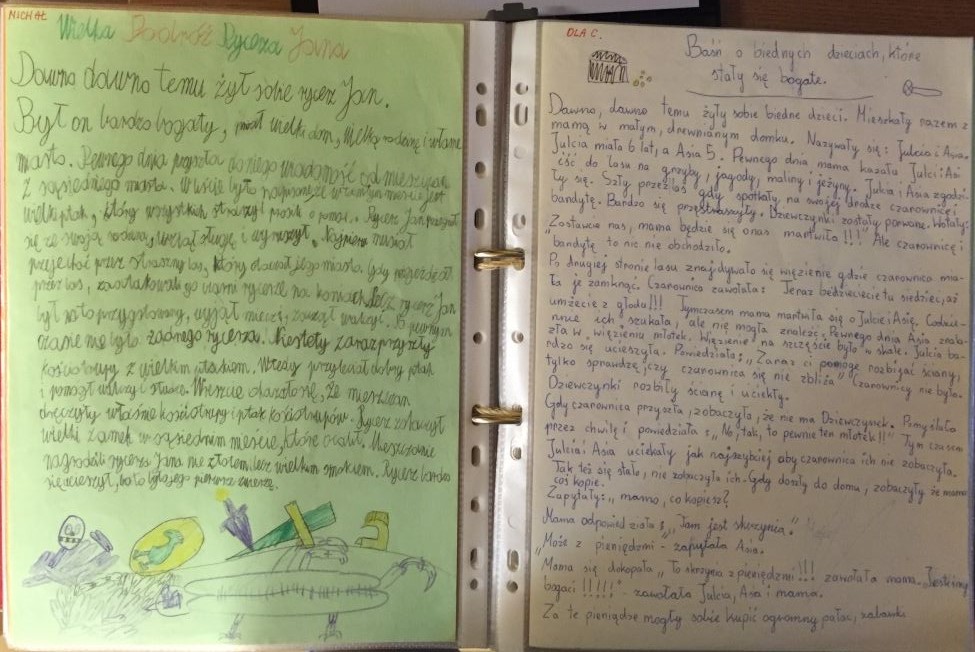 MICHAŁ
Wielka Podróż Rycerza Jana
Dawno dawno temu żył sobie rycerz Jan.
Był on bardzo bogaty, miał wielki dom, wielką rodzinę i własne
miasto. Pewnego dnia przyszła do niego wiadomość od mieszkańców
z sąsiedniego miasta. W liście było napisane, że w tamtym mieście jest
wielki ptak, który wszystkich straszy i prosili o pomoc. Rycerz Jan pożegnał
się ze swoją rodziną, wziął sługę i wyruszył. Najpierw musiał
przejechać przez straszny las, który otaczał jego miasto. Gdy przejeżdżał
przez las, zaatakowali go czarni rycerze na koniach. Lecz rycerz Jan
był na to przygotowany, wyjął miecz i zaczął walczyć. Po pewnym
czasie nie było żadnego rycerza. Niestety zaraz przyszły
kościotrupy z wielkim ptakiem. Wtedy przyleciał dobry ptak
i pomógł walczyć z
wielki zamek w sąsiednim mieście, które ocalił. Mieszkańcy
nagrodzili rycerza Jana nie złotem, lecz wielkim smokiem. Rycerz bardzo
się ucieszył, bo to było jego pierwsze zwierzę.
DLA C.
Baśń o biednych dzieciach, które
stały się bogate.
Dawno, dawno temu żyły sobie biedne dzieci. Mieszkały razem z
mamą w małym, drewnianym domku. Nazywały się: Julcia i Asia.
Julcia miała 6 lat, a Asia 5. Pewnego dnia mama kazała Julci i Asi
iść do lasu na grzyby, jagody, maliny i jeżyny. Julcia i Asia zgodzi-
ły się. Szły przez las gdy spotkały na swojej drodze czarownicę i
bandytę. Bardzo się przestraszyły. Dziewczynki zostały porwane. Wołały:
„Zostawcie nas, mama będzie się o nas martwiła!!!" Ale czarownicę i
bandytę to nic nie obchodziło.
Po drugiej stronie lasu znajdywało się więzienie gdzie czarownica mia-
ła je zamknąć. Czarownica zawołała: Teraz będziecie tu siedzieć, aż
umrzecie z głodu!!! Tymczasem mama martwiła się o Julcię i Asię. Codzie-
nnie ich szukała, ale nie mogła znaleźć. Pewnego dnia Asia znala-
zła w więzieniu młotek. Więzienie na szczęście było w skale. Julcia ba-
rdzo się ucieszyła. Powiedziała: „Zaraz ci pomogę rozbijać ściany,
tylko sprawdzę, czy czarownica się nie zbliża" Czarownicy nie było.
Dziewczynki rozbiły ścianę i uciekły.
Gdy czarownica przyszła, zobaczyła, że nie ma Dziewczynek. Pomyślała
przez chwilę i powiedziała: „No, tak, to pewnie ten młotek!!" Tym czasem
Julcia i Asia uciekały jak najszybciej aby czarownica ich nie zobaczyła.
Tak też się stało, nie zobaczyła ich. Gdy doszły do domu, zobaczyły, że mama
coś kopie.
Zapytały: „mamo, co kopiesz?
Mama odpowiedziała: „Tam jest skrzynia."
„Może z pieniędzmi - zapytała Asia.
Mama się dokopała „To skrzynia z pieniędzmi!!! zawołała mama. Jesteśmy
bogaci!!!!!" - zawołała Julcia, Asia i mama.
Za te pieniądze mogły sobie kupić ogromny pałac, zabawki